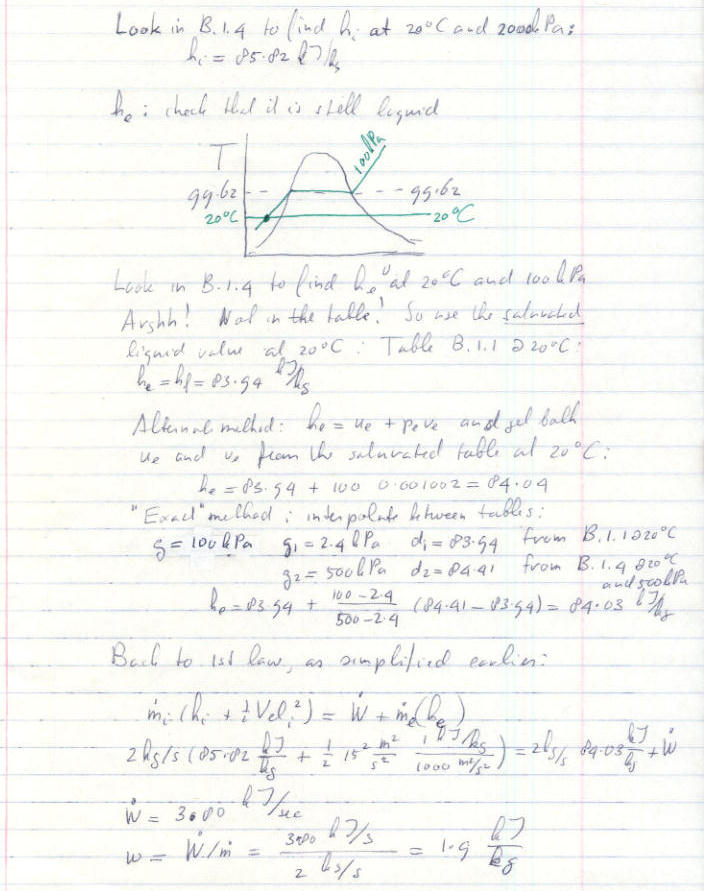 Look in B.1.4 to find hᵢ at 20°C and 2000kPa:
hᵢ = 85.82 kJ/kg
hₑ : check that it is still liquid
T
100kPa
99.62 99.62
20°C 20°C
Look in B.1.4 to find hₑ at 20°C and 100kPa
Arghh! Not in the table! So use the saturated
liquid value at 20°C : Table B.1.1 @ 20°C:
hₑ = hf = 83.94 kJ/kg
Alternate method: hₑ = uₑ + pₑvₑ and get both
uₑ and vₑ from the saturated table at 20°C:
hₑ = 83.94 + 100 0.001002 = 84.04
"Exact" method : interpolate between tables:
g = 100kPa g₁ = 2.4 kPa d₁ = 83.94 from B.1.1 @ 20°C
g₂ = 500kPa d₂ = 84.41 from B.1.4 @ 20°C
and 500kPa
hₑ = 83.94 + (100 - 2.4)/(500 - 2.4) (84.41 - 83.94) = 84.03 kJ/kg
Back to 1st law, as simplified earlier:
ṁᵢ (hᵢ + ½ Velᵢ²) = Ẇ + ṁₑ(hₑ)
2 kg/s (85.82 kJ/kg + ½ 15² m²/s² 1 kJ/kg / 1000 m²/s²) = 2kg/s 84.03 kJ/kg + Ẇ
Ẇ = 3.80 kJ/sec
w = Ẇ/ṁ = 3.80 kJ/s / 2 kg/s = 1.9 kJ/kg